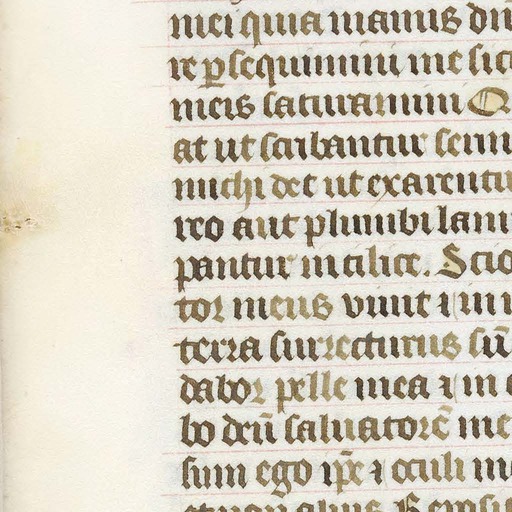 mei quia manus dn
re ꝑsequimini me sic
meis saturamini Q
at ut scribantur serm
michi det ut exarentu
reo aut plumbi lami
pantur in cilice. Scio
tor meus viuit ⁊ in
terra surrecturus sū
dabor pelle mea ⁊ in
bo deū saluatorē me
sum ego ip̄e ⁊ oculi m
et non alius. Repos